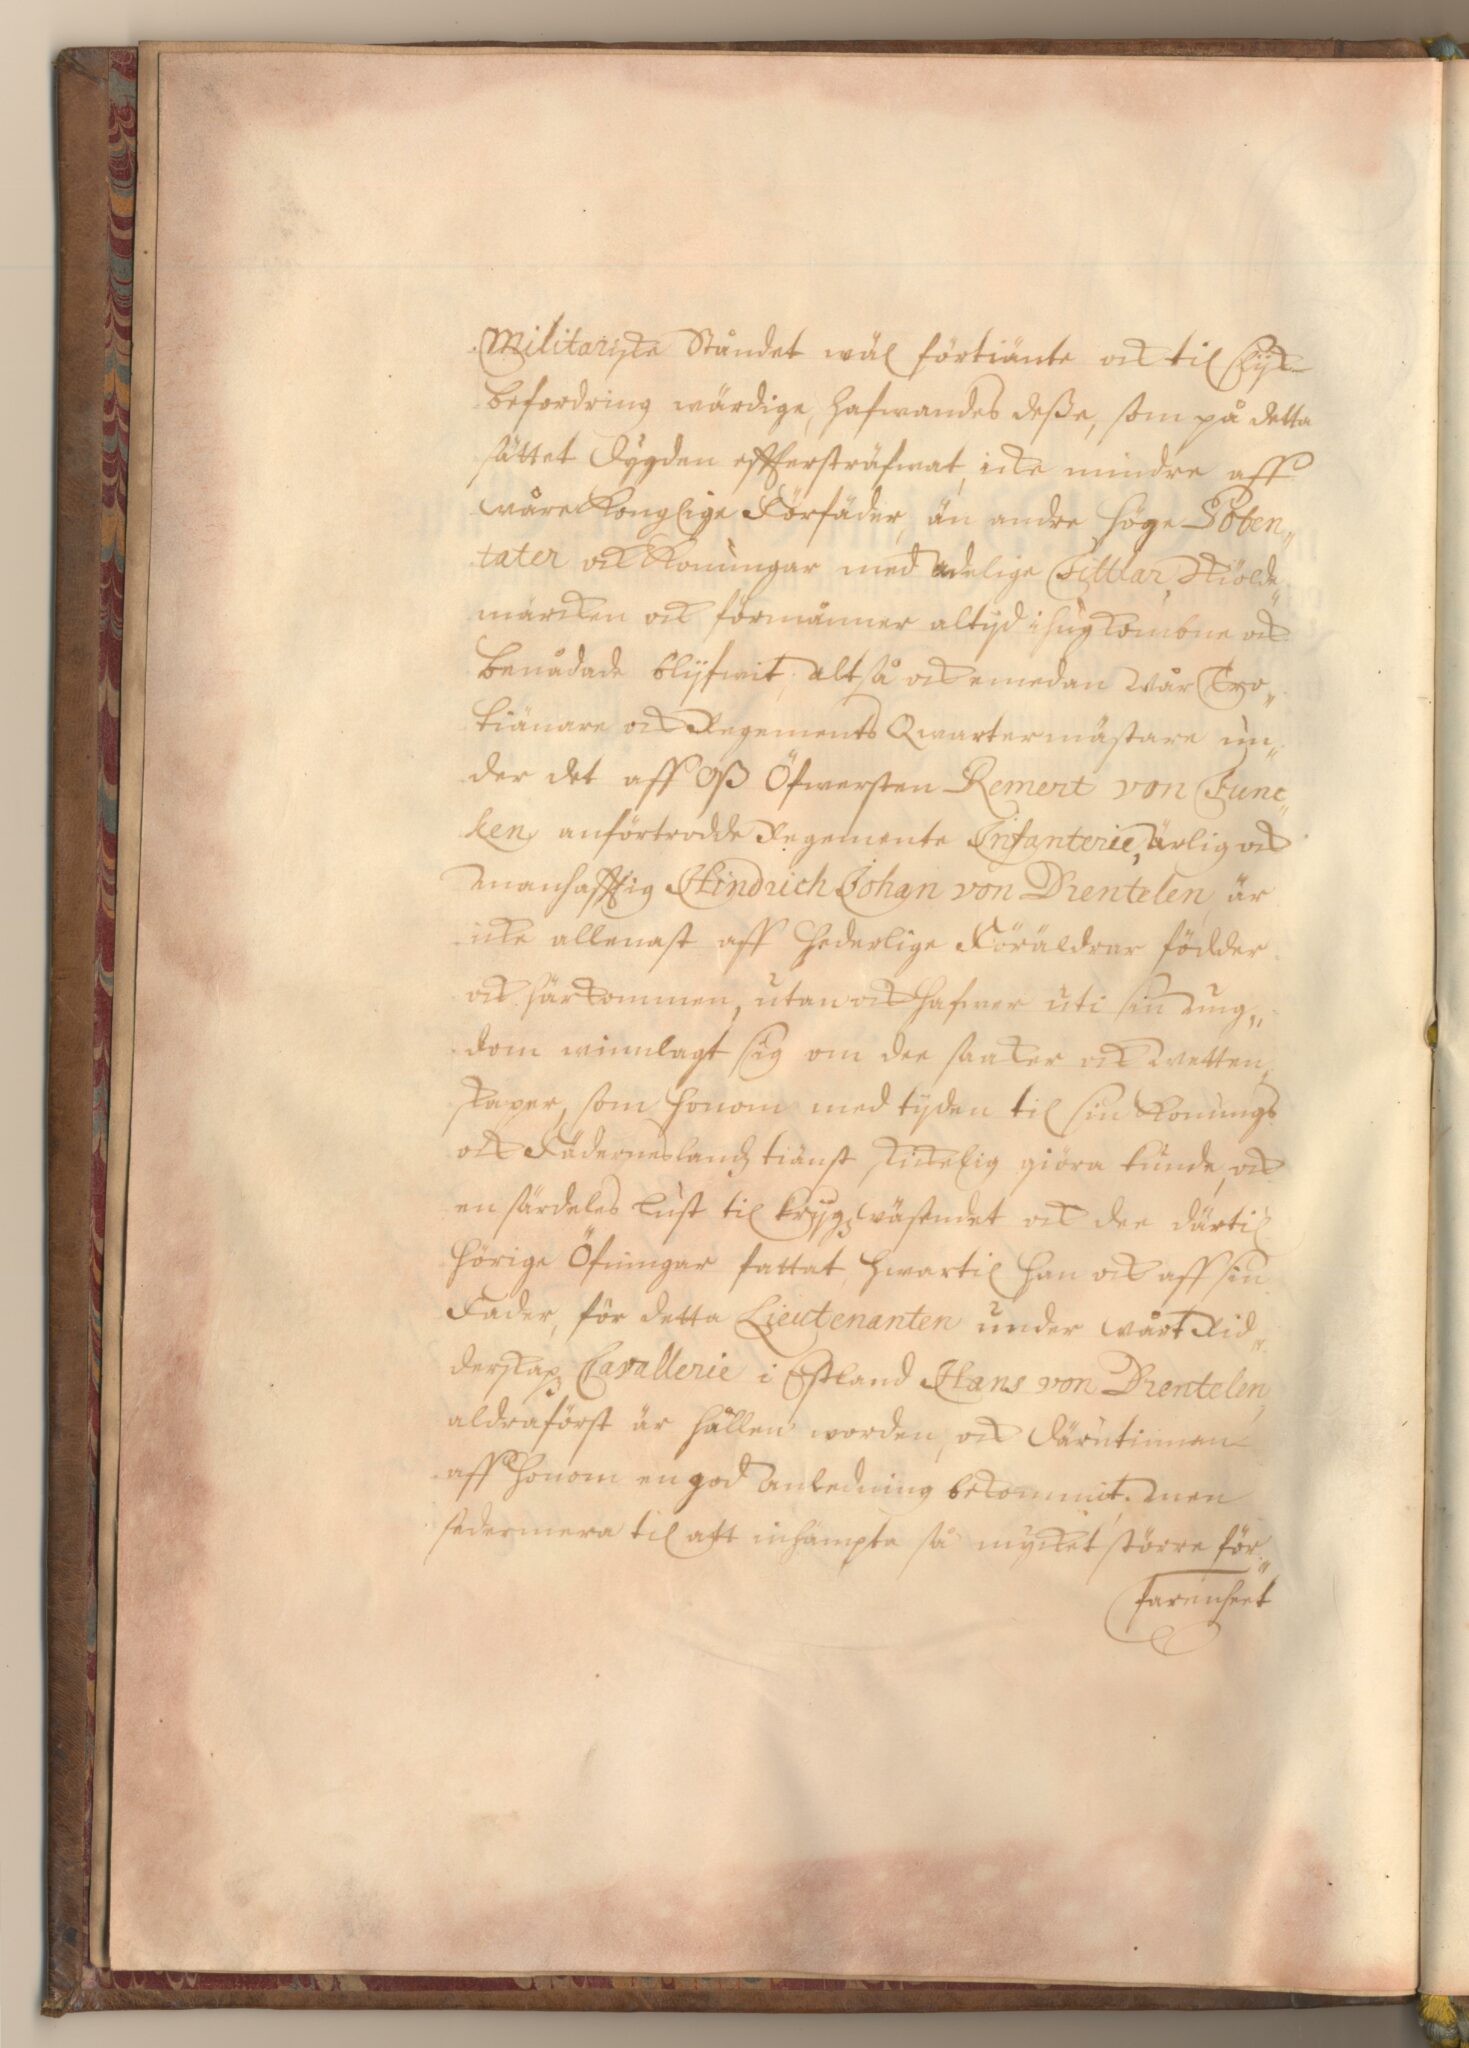 Militariske Ståndet wäl förtiänte ock til slijk
befordring wärdige, hafwandes deße, som på detta
sättet dygden efftersträfwat, icke mindre aff
wåre Konglige Förfäder, än andre höge Poten„
tater ock Konungar med adelige Tittlar, Skiölde„
märcken ock förmåner altijd ihugkombne ock
benådade blifwit, altså ock emedan wår Tro„
tiänare ock Regements Qwartermästare un„
der det aff Oß Öfwersten Remert von Func„
ken anförtrodde Regemente Infanterie, ärlig ock
manhafftig Hindrich Johan von Drentelen, är
icke allenast aff hederlige Föräldrar födder
ock härkommen, utan ock hafwer uti sin ung„
dom winnlagt sig om dee saaker ock wetten„
skaper, som honom med tijden til sin Konungs
ock Fädernesslandz tiänst skickelig giöra kunde, ock
en särdeles lust til krijgzwäsendet ock dee därtil
hörige Öfningar fattat, hwartil han ock aff sin
Fader, för detta Lieutenanten under wårt Rid„
derskapz Cavallerie i Estland Hans von Drentelen
aldraförst är hållen worden, ock därutinnan
aff honom en god anledning bekommit; men
sedermera til att inhämpta så mycket större för„
farenheet